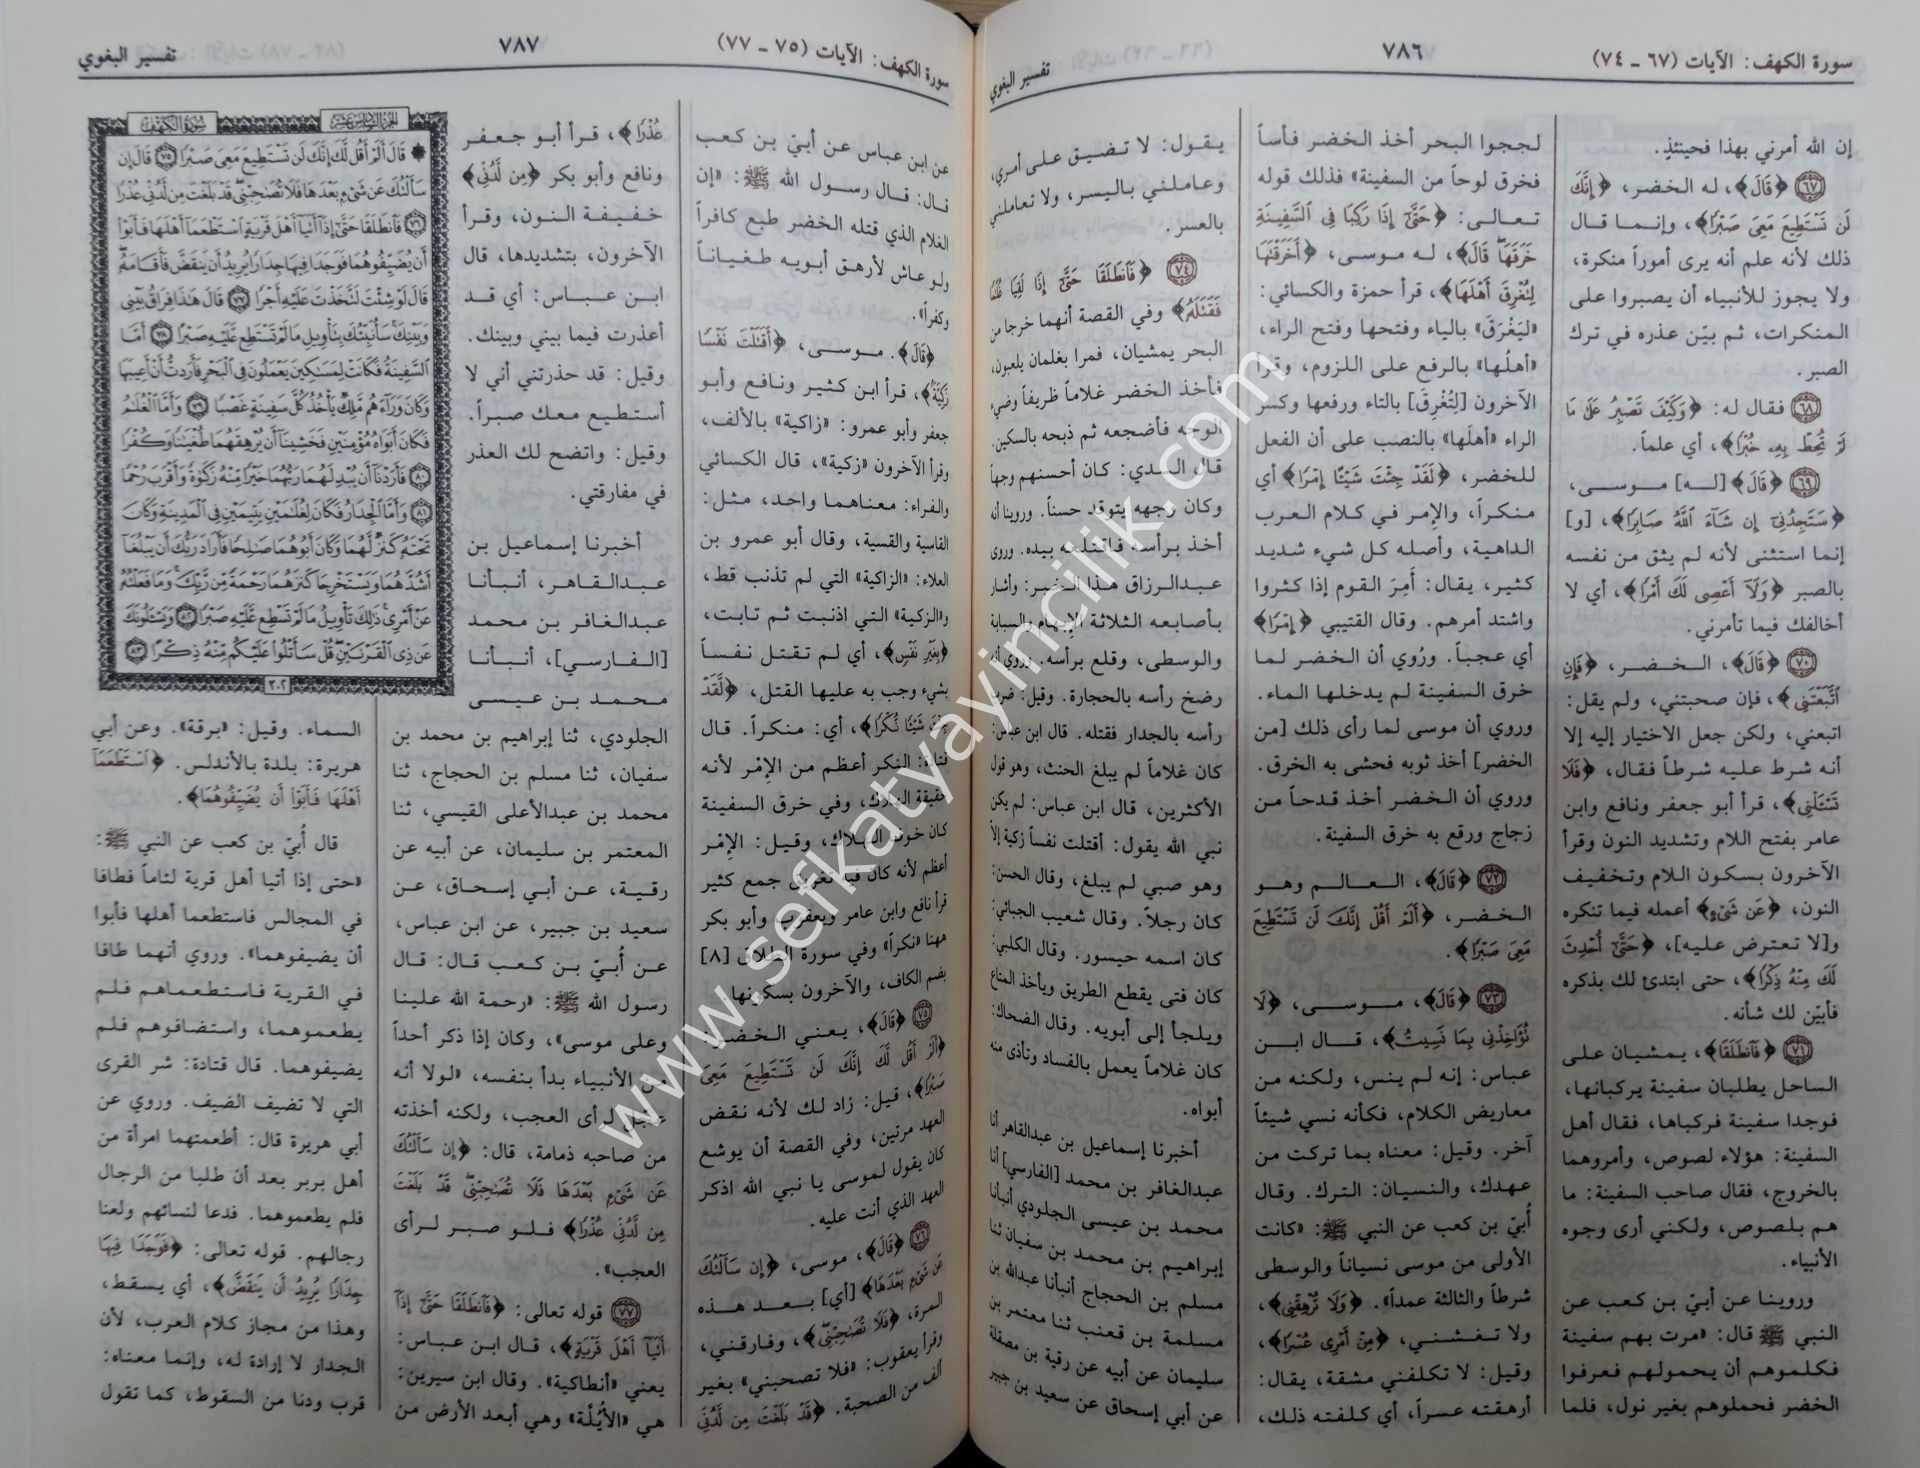 سورة الكهف: الآيات (٦٧ - ٧٤)
٧٨٦
تفسير البغوي
إن الله أمرني بهذا فحينئذٍ.
﴿٦٧﴾ ﴿قَالَ﴾، له الخضر، ﴿إِنَّكَ
لَن تَسْتَطِيعَ مَعِيَ صَبْرًا﴾، وإنما قال
ذلك لأنه علم أنه يرى أموراً منكرة،
ولا يجوز للأنبياء أن يصبروا على
المنكرات، ثم بيّن عذره في ترك
الصبر.
﴿٦٨﴾ فقال له: ﴿وَكَيْفَ تَصْبِرُ عَلَىٰ مَا
لَمْ تُحِطْ بِهِۦ خُبْرًا﴾، أي علماً.
﴿٦٩﴾ ﴿قَالَ﴾ [له] موسى،
﴿سَتَجِدُنِىٓ إِن شَآءَ ٱللَّهُ صَابِرًا﴾، [و]
إنما استثنى لأنه لم يثق من نفسه
بالصبر ﴿وَلَآ أَعْصِى لَكَ أَمْرًا﴾، أي لا
أخالفك فيما تأمرني.
﴿٧٠﴾ ﴿قَالَ﴾، الخضر، ﴿فَإِنِ
ٱتَّبَعْتَنِى﴾، فإن صحبتني، ولم يقل:
اتبعني، ولكن جعل الاختيار إليه إلا
أنه شرط عليه شرطاً فقال، ﴿فَلَا
تَسْـَٔلْنِى﴾، قرأ أبو جعفر ونافع وابن
عامر بفتح اللام وتشديد النون وقرأ
الآخرون بسكون اللام وتخفيف
النون، ﴿عَن شَىْءٍ﴾ أعمله فيما تنكره
و[لا تعترض عليه]، ﴿حَتَّىٰٓ أُحْدِثَ
لَكَ مِنْهُ ذِكْرًا﴾، حتى ابتدئ لك بذكره
فأبيّن لك شأنه.
﴿٧١﴾ ﴿فَٱنطَلَقَا﴾، يمشيان على
الساحل يطلبان سفينة يركبانها،
فوجدا سفينة فركباها، فقال أهل
السفينة: هؤلاء لصوص، وأمروهما
بالخروج، فقال صاحب السفينة: ما
هم بلصوص، ولكني أرى وجوه
الأنبياء.
وروينا عن أبيّ بن كعب عن
النبي ﷺ قال: «مرت بهم سفينة
فكلموهم أن يحمولهم فعرفوا
الخضر فحملوهم بغير نول، فلما
لججوا البحر أخذ الخضر فأساً
فخرق لوحاً من السفينة» فذلك قوله
تعالى: ﴿حَتَّىٰٓ إِذَا رَكِبَا فِى ٱلسَّفِينَةِ
خَرَقَهَا قَالَ﴾، له موسى، ﴿أَخَرَقْتَهَا
لِتُغْرِقَ أَهْلَهَا﴾، قرأ حمزة والكسائي:
«ليَغْرَقَ» بالياء وفتحها وفتح الراء،
«أهلُها» بالرفع على اللزوم، وقرأ
الآخرون [لِتُغْرِقَ] بالتاء ورفعها وكسر
الراء «أهلَها» بالنصب على أن الفعل
للخضر، ﴿لَقَدْ جِئْتَ شَيْـًٔا إِمْرًا﴾ أي
منكراً، والإمر في كلام العرب
الداهية، وأصله كل شيء شديد
كثير، يقال: أَمِرَ القوم إذا كثروا
واشتد أمرهم. وقال القتيبي ﴿إِمْرًا﴾
أي عجباً. ورُوي أن الخضر لما
خرق السفينة لم يدخلها الماء.
وروي أن موسى لما رأى ذلك [من
الخضر] أخذ ثوبه فحشى به الخرق.
وروي أن الخضر أخذ قدحاً من
زجاج ورقع به خرق السفينة.
﴿٧٢﴾ ﴿قَالَ﴾، العالم وهو
الخضر، ﴿أَلَمْ أَقُلْ إِنَّكَ لَن تَسْتَطِيعَ
مَعِىَ صَبْرًا﴾.
﴿٧٣﴾ ﴿قَالَ﴾، موسى، ﴿لَا
تُؤَاخِذْنِى بِمَا نَسِيتُ﴾، قال ابن
عباس: إنه لم ينس، ولكنه من
معاريض الكلام، فكأنه نسي شيئاً
آخر. وقيل: معناه بما تركت من
عهدك، والنسيان: الترك. وقال
أُبيّ بن كعب عن النبي ﷺ: «كانت
الأولى من موسى نسياناً والوسطى
شرطاً والثالثة عمداً». ﴿وَلَا تُرْهِقْنِى﴾،
ولا تغشني، ﴿مِنْ أَمْرِى عُسْرًا﴾،
وقيل: لا تكلفني مشقة، يقال:
أرهقته عسراً، أي كلفته ذلك،
يقول: لا تضيق على أمري،
وعاملني باليسر، ولا تعاملني
بالعسر.
﴿٧٤﴾ ﴿فَٱنطَلَقَا حَتَّىٰٓ إِذَا لَقِيَا غُلَٰمًا
فَقَتَلَهُۥ﴾ وفي القصة أنهما خرجا من
البحر يمشيان، فمرا بغلمان يلعبون،
فأخذ الخضر غلاماً ظريفاً وضيء
الوجه فأضجعه ثم ذبحه بالسكين.
قال السدي: كان أحسنهم وجهاً
وكان وجهه يتوقد حسناً. وروينا أنه
أخذ برأسه فاقتلعه بيده. وروى
عبدالرزاق هذا الخبر: وأشار
بأصابعه الثلاثة الإبهام والسبابة
والوسطى، وقلع برأسه. وروي أنه
رضخ رأسه بالحجارة. وقيل: ضرب
رأسه بالجدار فقتله. قال ابن عباس:
كان غلاماً لم يبلغ الحنث، وهو قول
الأكثرين، قال ابن عباس: لم يكن
نبي الله يقول: أقتلت نفساً زكية إلا
وهو صبي لم يبلغ، وقال الحسن:
كان رجلاً. وقال شعيب الجبائي:
كان اسمه حيسور. وقال الكلبي:
كان فتى يقطع الطريق ويأخذ المتاع
ويلجأ إلى أبويه. وقال الضحاك:
كان غلاماً يعمل بالفساد وتأذى منه
أبواه.
أخبرنا إسماعيل بن عبدالقاهر أنا
عبدالغافر بن محمد [الفارسي] أنا
محمد بن عيسى الجلودي أنبأنا
إبراهيم بن محمد بن سفيان ثنا
مسلم بن الحجاج أنبأنا عبدالله بن
مسلمة بن قعنب ثنا معتمر بن
سليمان عن أبيه عن رقية بن مصقلة
عن أبي إسحاق عن سعيد بن جبير
سورة الكهف: الآيات (٧٥ - ٧٧)
٧٨٧
تفسير البغوي
عن ابن عباس عن أبيّ بن كعب
قال: قال رسول الله ﷺ: «إن
الغلام الذي قتله الخضر طبع كافراً
ولو عاش لأرهق أبويه طغياناً
وكفراً».
﴿قَالَ﴾. موسى، ﴿أَقَتَلْتَ نَفْسًا
زَكِيَّةً﴾، قرأ ابن كثير ونافع وأبو
جعفر وأبو عمرو: «زاكية» بالألف،
وقرأ الآخرون «زكية»، قال الكسائي
والفراء: معناهما واحد، مثل:
القاسية والقسية، وقال أبو عمرو بن
العلاء: «الزاكية» التي لم تذنب قط،
و«الزكية» التي اذنبت ثم تابت،
﴿بِغَيْرِ نَفْسٍ﴾، أي لم تقتل نفساً
بشيء وجب به عليها القتل، ﴿لَّقَدْ
جِئْتَ شَيْـًٔا نُّكْرًا﴾، أي: منكراً. قال
قتادة: النكر أعظم من الإمْر لأنه
حقيقة الهلاك، وفي خرق السفينة
كان خوف الهلاك، وقيل: الإمْر
أعظم لأنه كان فيه تغريق جمع كثير
قرأ نافع وابن عامر ويعقوب وأبو بكر
ههنا «نكراً» وفي سورة الطلاق [٨]
بضم الكاف، والآخرون بسكونها.
﴿٧٥﴾ ﴿قَالَ﴾، يعني الخضر:
﴿أَلَمْ أَقُل لَّكَ إِنَّكَ لَن تَسْتَطِيعَ مَعِىَ
صَبْرًا﴾، قيل: زاد لك لأنه نقض
العهد مرتين، وفي القصة أن يوشع
كان يقول لموسى يا نبي الله اذكر
العهد الذي أنت عليه.
﴿٧٦﴾ ﴿قَالَ﴾، موسى، ﴿إِن سَأَلْتُكَ
عَن شَىْءٍۭ بَعْدَهَا﴾ [أي] بعد هذه
المرة، ﴿فَلَا تُصَٰحِبْنِى﴾، وفارقني،
وقرأ يعقوب: «فلا تصحبني» بغير
ألف من الصحبة. ﴿قَدْ بَلَغْتَ مِن لَّدُنِّى
عُذْرًا﴾، قرأ أبو جعفر
ونافع وأبو بكر ﴿مِن لَّدُنِى﴾
خفيفة النون، وقرأ
الآخرون، بتشديدها، قال
ابن عباس: أي قد
أعذرت فيما بيني وبينك.
وقيل: قد حذرتني أني لا
أستطيع معك صبراً.
وقيل: واتضح لك العذر
في مفارقتي.
أخبرنا إسماعيل بن
عبدالقاهر، أنبأنا
عبدالغافر بن محمد
[الفارسي]، أنبأنا
محمد بن عيسى
الجلودي، ثنا إبراهيم بن محمد بن
سفيان، ثنا مسلم بن الحجاج، ثنا
محمد بن عبدالأعلى القيسي، ثنا
المعتمر بن سليمان، عن أبيه عن
رقية، عن أبي إسحاق، عن
سعيد بن جبير، عن ابن عباس،
عن أُبيّ بن كعب قال: قال
رسول الله ﷺ: «رحمة الله علينا
وعلى موسى»، وكان إذا ذكر أحداً
من الأنبياء بدأ بنفسه، «لولا أنه
عجل لرأى العجب، ولكنه أخذته
من صاحبه ذمامة، قال: ﴿إِن سَأَلْتُكَ
عَن شَىْءٍۭ بَعْدَهَا فَلَا تُصَٰحِبْنِى قَدْ بَلَغْتَ
مِن لَّدُنِّى عُذْرًا﴾ فلو صبر لرأى
العجب».
﴿٧٧﴾ قوله تعالى: ﴿فَٱنطَلَقَا حَتَّىٰٓ إِذَآ
أَتَيَآ أَهْلَ قَرْيَةٍ﴾، قال ابن عباس:
يعني «أنطاكية». وقال ابن سيرين:
هي «الأُبُلّة» وهي أبعد الأرض من
الجزء السادس عشر
سورة الكهف
۞ قَالَ أَلَمْ أَقُل لَّكَ إِنَّكَ لَن تَسْتَطِيعَ مَعِىَ صَبْرًا ٧٥ قَالَ إِن
سَأَلْتُكَ عَن شَىْءٍۭ بَعْدَهَا فَلَا تُصَٰحِبْنِى قَدْ بَلَغْتَ مِن لَّدُنِّى عُذْرًا
٧٦ فَٱنطَلَقَا حَتَّىٰٓ إِذَآ أَتَيَآ أَهْلَ قَرْيَةٍ ٱسْتَطْعَمَآ أَهْلَهَا فَأَبَوْا۟
أَن يُضَيِّفُوهُمَا فَوَجَدَا فِيهَا جِدَارًا يُرِيدُ أَن يَنقَضَّ فَأَقَامَهُۥ
قَالَ لَوْ شِئْتَ لَتَّخَذْتَ عَلَيْهِ أَجْرًا ٧٧ قَالَ هَٰذَا فِرَاقُ بَيْنِى
وَبَيْنِكَ سَأُنَبِّئُكَ بِتَأْوِيلِ مَا لَمْ تَسْتَطِع عَّلَيْهِ صَبْرًا ٧٨ أَمَّا
ٱلسَّفِينَةُ فَكَانَتْ لِمَسَٰكِينَ يَعْمَلُونَ فِى ٱلْبَحْرِ فَأَرَدتُّ أَنْ أَعِيبَهَا
وَكَانَ وَرَآءَهُم مَّلِكٌ يَأْخُذُ كُلَّ سَفِينَةٍ غَصْبًا ٧٩ وَأَمَّا ٱلْغُلَٰمُ
فَكَانَ أَبَوَاهُ مُؤْمِنَيْنِ فَخَشِينَآ أَن يُرْهِقَهُمَا طُغْيَٰنًا وَكُفْرًا
٨٠ فَأَرَدْنَآ أَن يُبْدِلَهُمَا رَبُّهُمَا خَيْرًا مِّنْهُ زَكَوٰةً وَأَقْرَبَ رُحْمًا
٨١ وَأَمَّا ٱلْجِدَارُ فَكَانَ لِغُلَٰمَيْنِ يَتِيمَيْنِ فِى ٱلْمَدِينَةِ وَكَانَ
تَحْتَهُۥ كَنزٌ لَّهُمَا وَكَانَ أَبُوهُمَا صَٰلِحًا فَأَرَادَ رَبُّكَ أَن يَبْلُغَآ
أَشُدَّهُمَا وَيَسْتَخْرِجَا كَنزَهُمَا رَحْمَةً مِّن رَّبِّكَ وَمَا فَعَلْتُهُۥ
عَنْ أَمْرِى ذَٰلِكَ تَأْوِيلُ مَا لَمْ تَسْطِع عَّلَيْهِ صَبْرًا ٨٢ وَيَسْـَٔلُونَكَ
عَن ذِى ٱلْقَرْنَيْنِ قُلْ سَأَتْلُوا۟ عَلَيْكُم مِّنْهُ ذِكْرًا ٨٣
٣٠٢
السماء. وقيل: «برقة». وعن أبي
هريرة: بلدة بالأندلس. ﴿ٱسْتَطْعَمَآ
أَهْلَهَا فَأَبَوْا۟ أَن يُضَيِّفُوهُمَا﴾.
قال أُبيّ بن كعب عن النبي ﷺ:
«حتى إذا أتيا أهل قرية لئاماً فطافا
في المجالس فاستطعما أهلها فأبوا
أن يضيفوهما». وروي أنهما طافا
في القرية فاستطعماهم فلم
يطعموهما، واستضافوهم فلم
يضيفوهما. قال قتادة: شر القرى
التي لا تضيف الضيف. وروي عن
أبي هريرة قال: أطعمتهما امرأة من
أهل بربر بعد أن طلبا من الرجال
فلم يطعموهما. فدعا لنسائهم ولعنا
رجالهم. قوله تعالى: ﴿فَوَجَدَا فِيهَا
جِدَارًا يُرِيدُ أَن يَنقَضَّ﴾، أي يسقط،
وهذا من مجاز كلام العرب، لأن
الجدار لا إرادة له، وإنما معناه:
قرب ودنا من السقوط، كما تقول
www.sefkatyayincilik.com